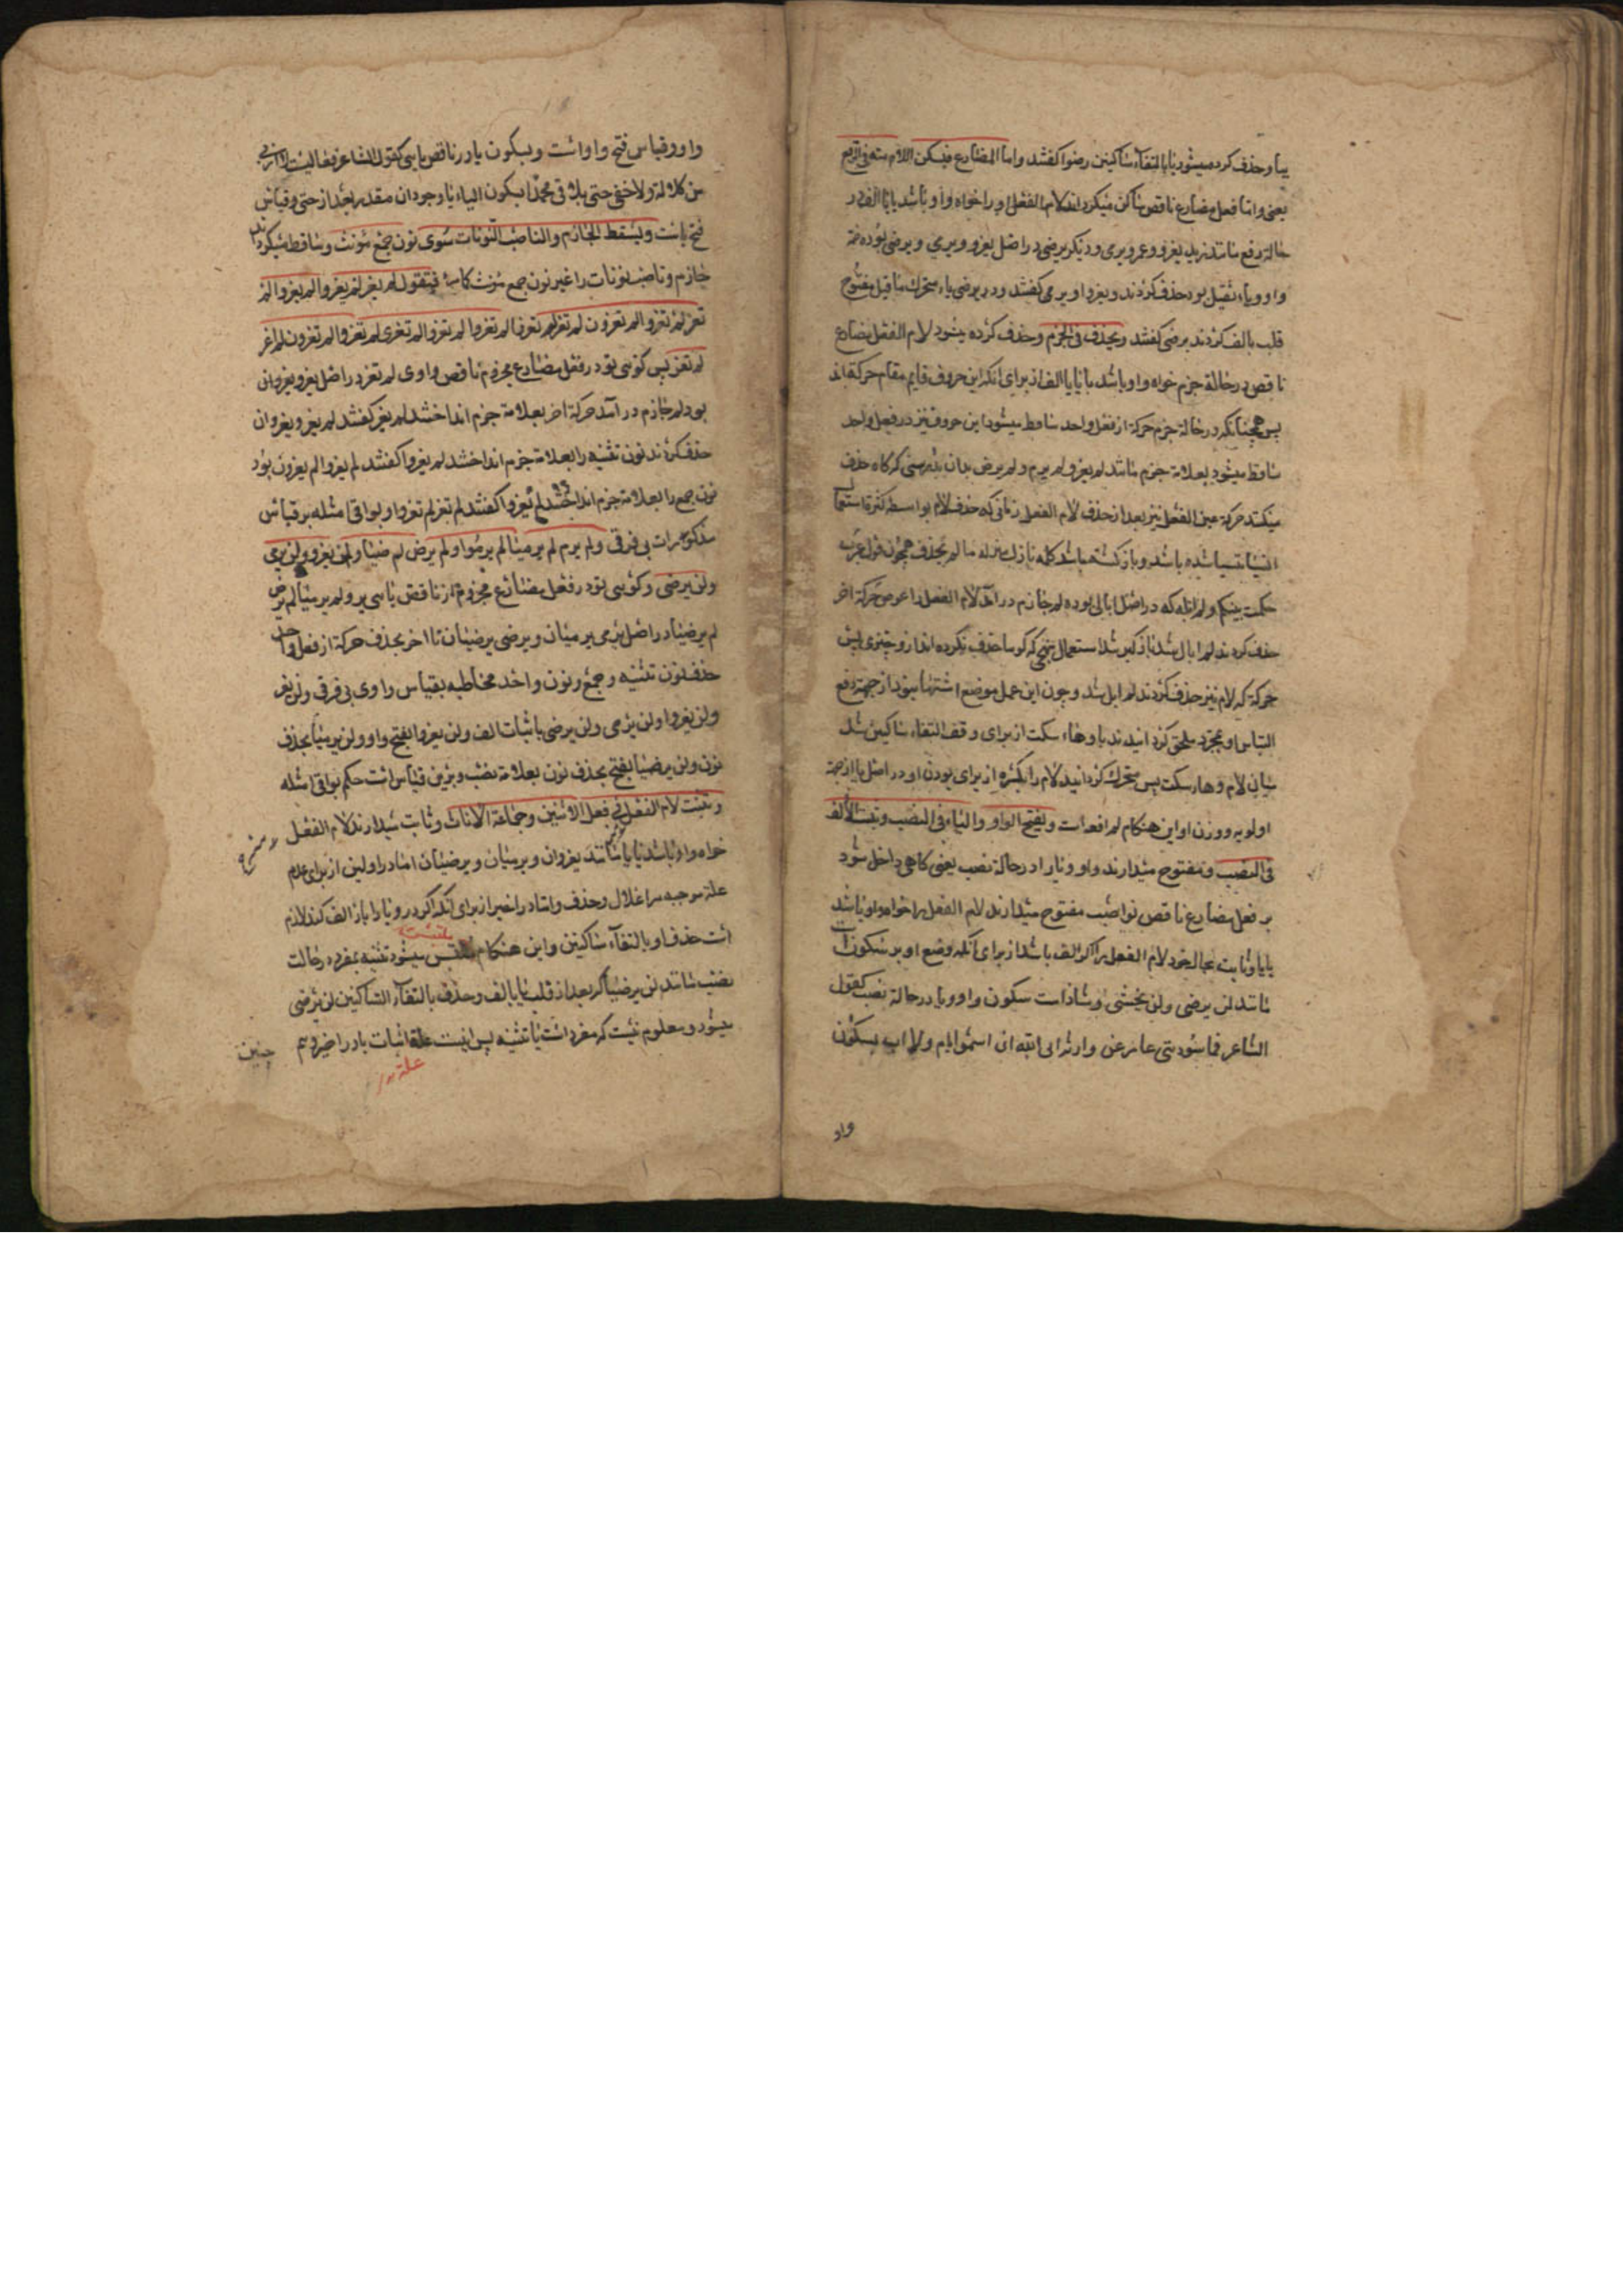 بیا و حذف کرده میشود یا بالتقاء ساکنین رضوا کفشد واما المضارع فیسکن اللام منه فی الرفع
یعنی واما فعل مضارع ناقص ساکن میکرداند لام الفعل او را خواه واو باشد یا یا الف در
حالة رفع مانند زید یغزو وعمرو یرمی ودیکر یرضی در اصل یغزو ویرمی ویرضی بوده ضمة
واو ویاء ثقیل بود حذف کردند ویغزو ویرمی کفشد ودر یرضی یاء متحرک ماقبل مفتوح
قلب بالف کردند یرضی کفشد ویحذف فی الجزم وحذف کرده میشود لام الفعل مضارع
ناقص در حالة جزم خواه واو باشد یا یا یا الف از برای انکه این حروف قایم مقام حرکة اند
پس همچنانکه در حالة جزم حرکة از فعل واحد ساقط میشود این حروف نیز در فعل واحد
ساقط میشود بعلامة جزم مانند لم یغز ولم یرم ولم یرض بدان بدرستی که کاه حذف
میکنند حرکة عین الفعل نیز بعد از حذف لام الفعل زمانی که حذف لام بواسطه کثرة استعمال
نسیا منسیا شده باشد وباز کشته باشد کلمه نازل بمنزله ما لم یحذف همچون قول عرب
ولم ابله که در اصل ابالی بوده لم جازم در آمد لام الفعل را عوض حرکة اخر
حذف کردند لم ابال شد باز کثیر شد استعمال بنحی که کویا حذف نکرده اند از و چیزی پس
حرکة که لام نیز حذف کردند لم ابل شد وچون این عمل موضع اشتهاء بود از جهة دفع
التباس او بمجزد ملحق کردانیدند باو هاء سکت از برای وقف التقاء ساکنین شد
میان لام وهاء سکت پس متحرک کردانید لام را بکسره از برای بودن او در اصل یا از جهة
اولویه ووزن او این هنکام لم افعه است ویفتح الواو والیاء فی النصب ویثبت الالف
فی النصب ومفتوح میدارند واو ویا را در حالة نصب یعنی کاهی داخل شود
بر فعل مضارع ناقص نواصب مفتوح میدارند لام الفعل را خواه واو باشد
یا یا وثابت بحال خود لام الفعل را اکر الف باشد از برای آنکه وضع او بر سکون است
مانند لن یرضی ولن یخشی وشاذ است سکون واو ویا در حالة نصب کقول
الشاعر فما سودتنی عامر عن وراثة ابی الله ان اسمو بام ولا اب بسکون
واو
واو وقیاس فتح واو است وبسکون یا در ناقص یایی کقول الشاعر فالیت لا ارثی
من کلالة ولا حفی حتی تلاقی محمدا بسکون الیاء با وجود ان مقدر بعد از حتی وقیاس
فتح یاست ویسقط الجازم والناصب النونات سوی نون جمع مؤنث وساقط میکرداند
جازم وناصب نونات را غیر نون جمع مؤنث کامر فتقول لم یغز لم یغزوا لم یغزوا لم
تغز لم تغزوا لم یغزون لم تغز لم تغزوا لم تغزوا لم تغزی لم تغزوا لم تغزون لم اغز
لم نغز پس کویی تو در فعل مضارع مجزوم ناقص واوی لم تغز در اصل یغزو یغزوان
بود لم جازم در آمد حرکة اخر بعلامة جزم انداخشد لم یغز کفشد لم یغزو یغزوان
حذف کردند نون تثنیه را بعلامة جزم انداخشد لم یغزوا کفشد لم یغزوا لم یغزون بود
نون جمع را بعلامة جزم انداخشد لم یغزوا کفشد لم تغز لم تغزوا وبواقی امثله بر قیاس
مذکورات بی فرقی ولم یرم لم یرمیا لم یرموا ولم یرض لم یرضیا ولن یغزو ولن یرمی
ولن یرضی وکویی تو در فعل مضارع مجزوم از ناقص یایی لم یرم ولم یرمیا لم یرض
لم یرضیا در اصل یرمی یرمیان ویرضی یرضیان تا اخر بحذف حرکة از فعل واحد
حذف نون تثنیه وجمع ونون واحد مخاطبه بقیاس واوی بی فرقی ولن یغزو
ولن یغزوا ولن یرمی ولن یرضی باثبات الف ولن یغزوا بفتح واو ولن یرمیا بحذف
نون ولن یرضیا بفتح بحذف نون بعلامة نصب وبرین قیاس است حکم بواقی امثله
ویثبت لام الفعل فی فعل الاثنین وجماعة الاناث وثابت میدارند لام الفعل
خواه واو باشد یا یا مانند یغزوان ویرمیان ویرضیان اما در اولین از برای عدم
علة موجبه مر اعلال وحذف واما در اخیر از برای آنکه اکر در و یا را باز الف کند لازم
است حذف او بالتقاء ساکنین واین هنکام ملتبس میشود تثنیه بمفرد در حالت
ملتبس
نصب مانند لن یرضیا اکر بعد از قلب یا بالف وحذف بالتقاء الساکنین لن یرضی
میشود ومعلوم نیست که مفرد است یا تثنیه پس اینست علة اثبات یا در اخیر وسم
چنین